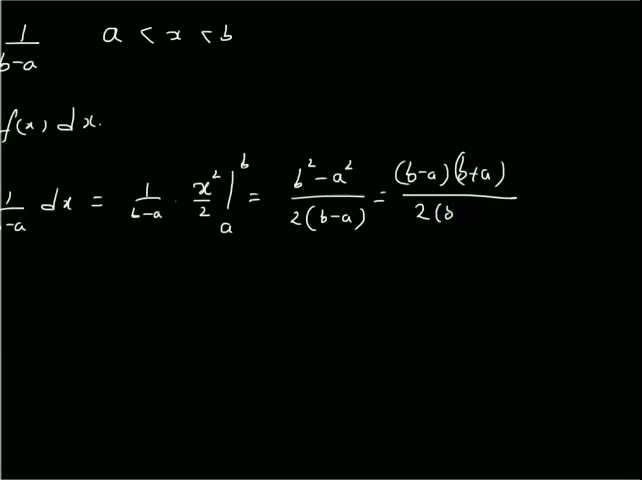 1/(b-a) a < x < b
f(x) dx.
1/-a dx = 1/(b-a) · x²/2 |_a^b = (b² - a²)/(2(b-a)) = (b-a)(b+a)/(2(b